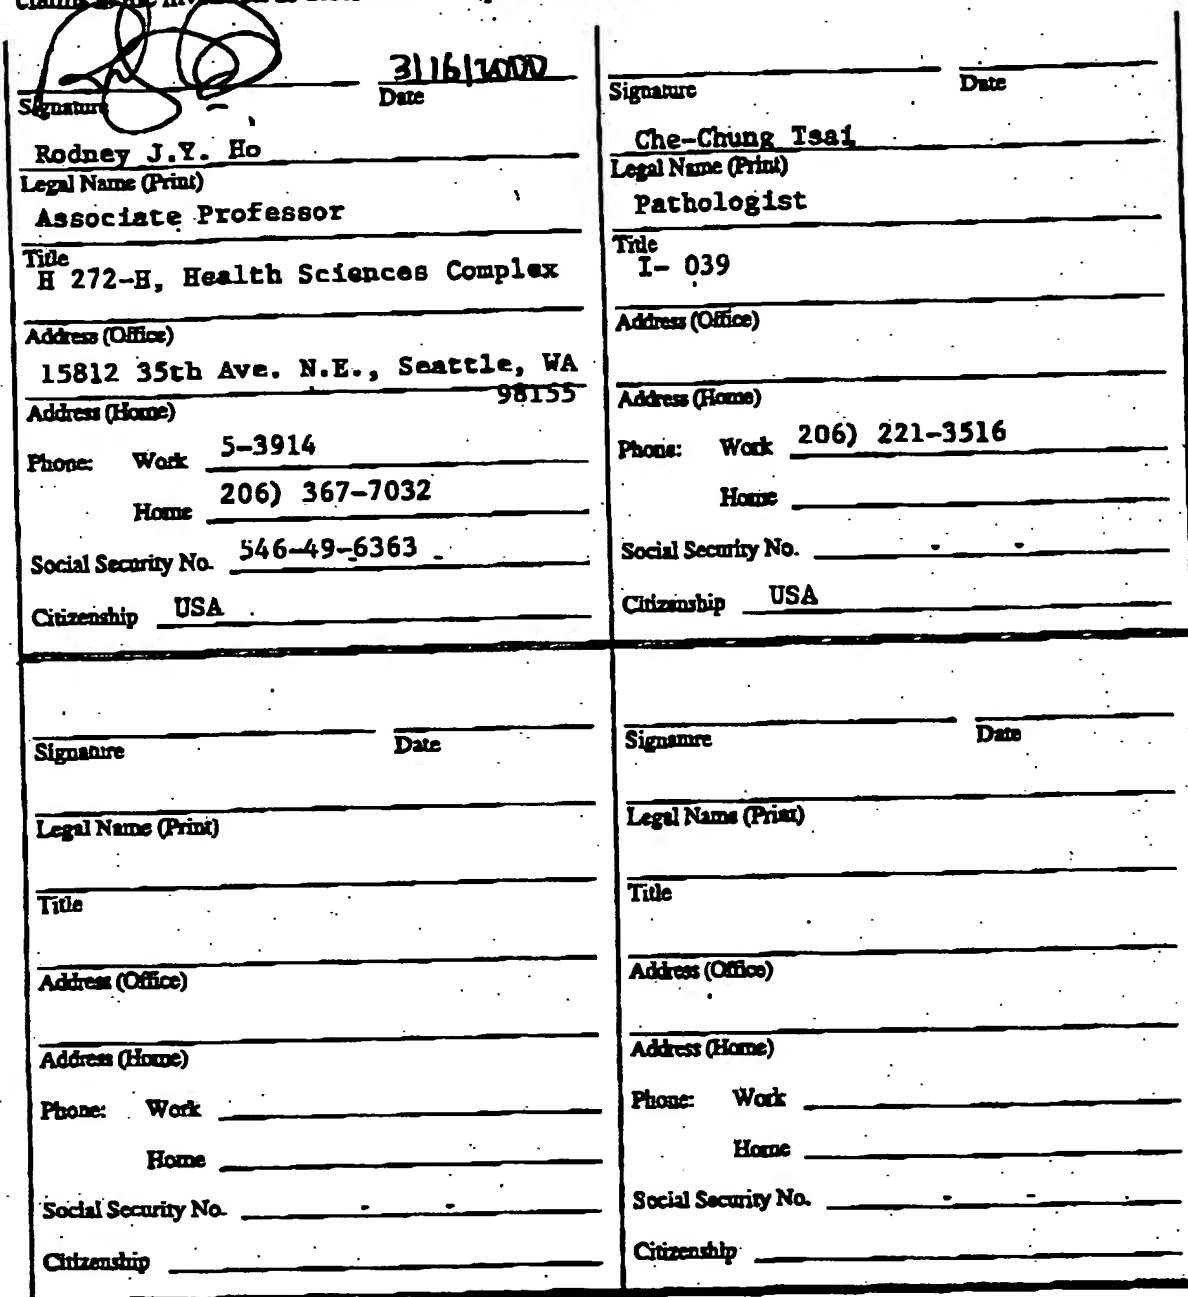 3/16/2000
Signature Date
Rodney J.Y. Ho
Legal Name (Print)
Associate Professor
Title
H 272-H, Health Sciences Complex
Address (Office)
15812 35th Ave. N.E., Seattle, WA
98155
Address (Home)
Phone: Work 5-3914
Home 206) 367-7032
Social Security No. 546-49-6363
Citizenship USA
Signature Date
Che-Chung Tsai
Legal Name (Print)
Pathologist
Title
I- 039
Address (Office)
Address (Home)
Phone: Work 206) 221-3516
Home
Social Security No. - -
Citizenship USA
Signature Date
Legal Name (Print)
Title
Address (Office)
Address (Home)
Phone: Work
Home
Social Security No. - -
Citizenship
Signature Date
Legal Name (Print)
Title
Address (Office)
Address (Home)
Phone: Work
Home
Social Security No. - -
Citizenship